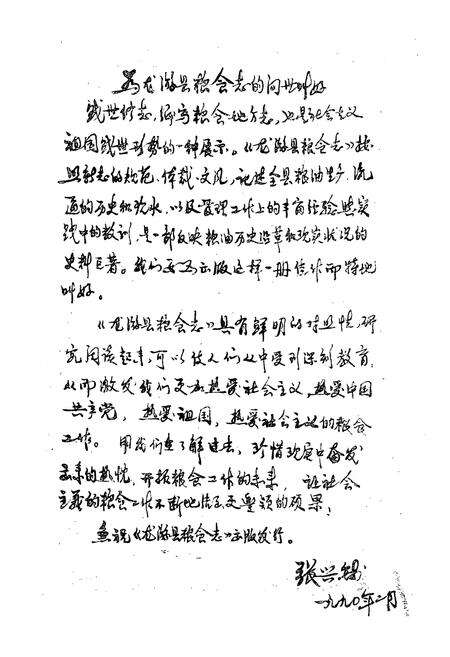 为龙游县粮食志的问世叫好
盛世修志,编写粮食地方志,也是社会主义
祖国盛世形势的一种展示。《龙游县粮食志》按
照新志的规范、体裁、文风,记述全县粮油生产、流
通的历史和现状,以及管理工作上的丰富经验与实
践中的教训,是一部反映粮油历史沿革和现实状况的
史料巨著。我们要为出版这样一册佳作而特地
叫好。
《龙游县粮食志》具有鲜明的专业性,研
究阅读起来,可以使人们从中受到深刻教育,
从而激发我们更加热爱社会主义,热爱中国
共产党,热爱祖国,热爱社会主义的粮食
工作。用我们在了解过去,珍惜现在中奋发
的热忱,开拓粮食工作的未来,让社会
主义的粮食工作不断地结出更丰硕的硕果。
鱼祝《龙游县粮食志》出版发行。
张兴
一九九〇年二月